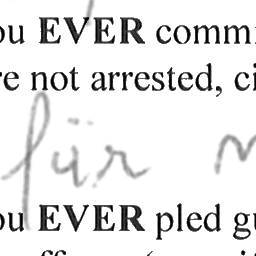 ou EVER commi
re not arrested, ci
für
ou EVER pled gu